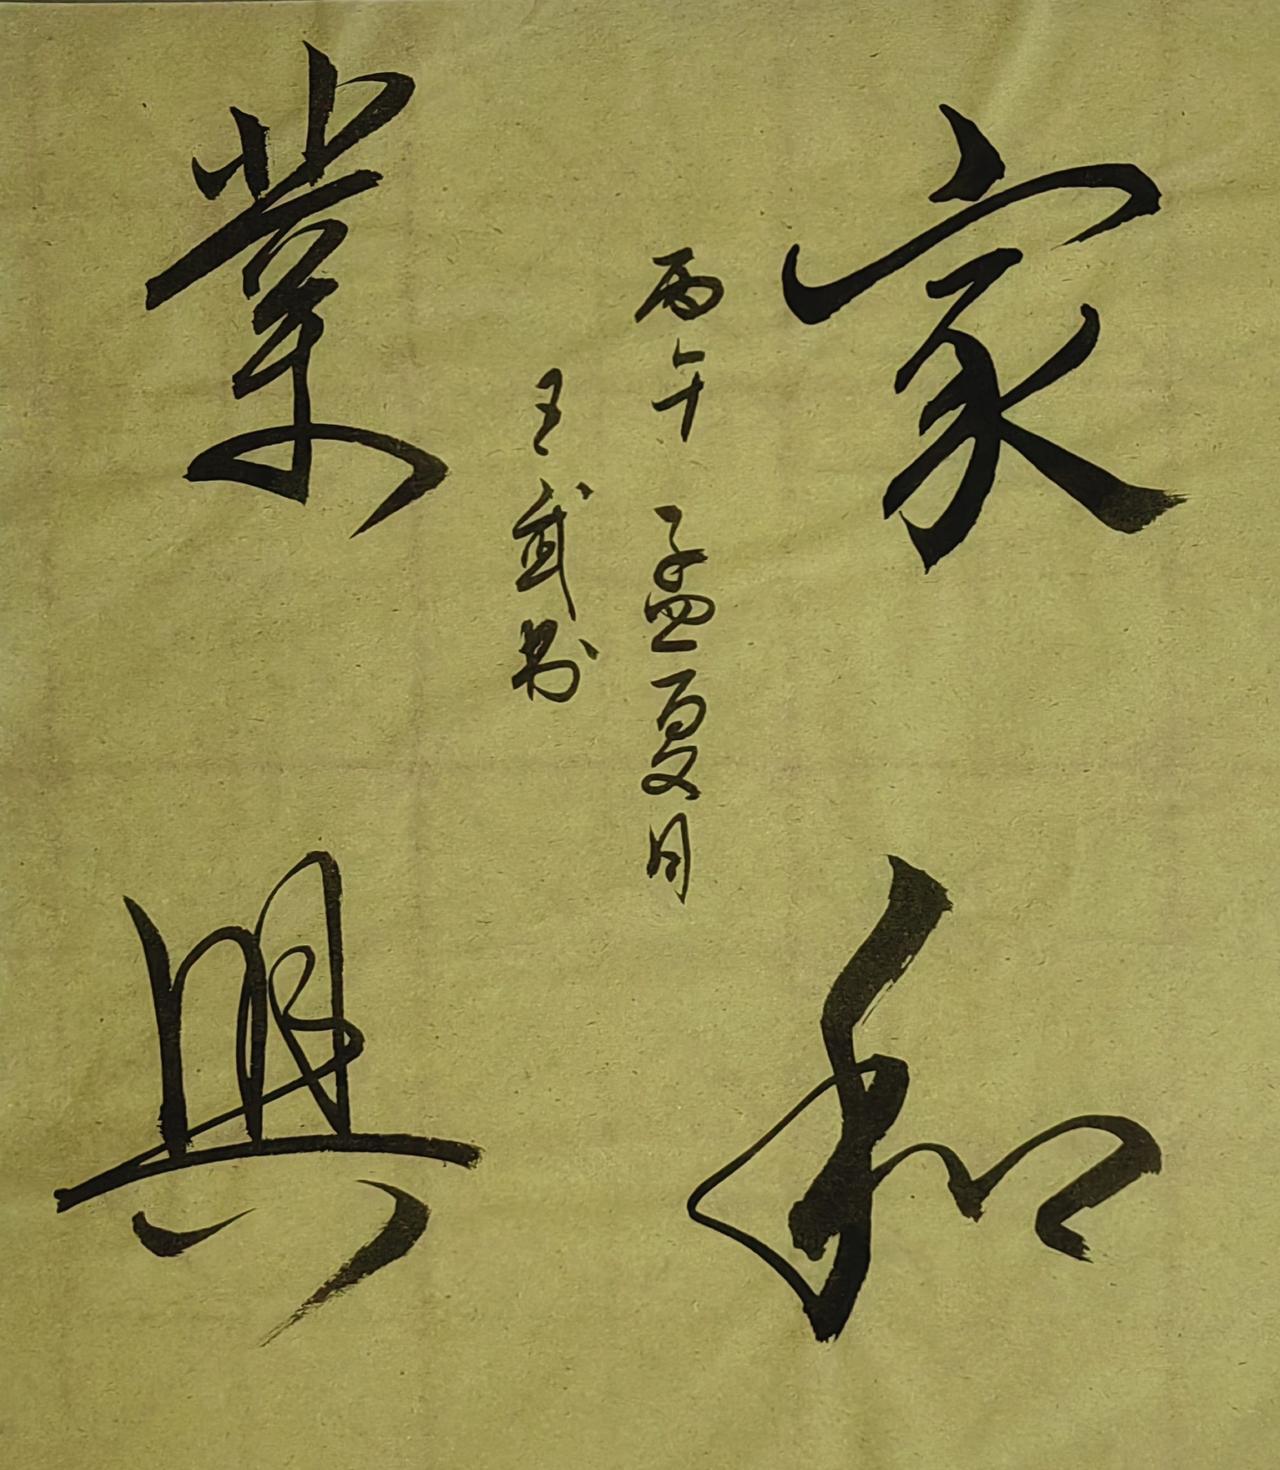 家和
業興
丙午孟夏月
王武書